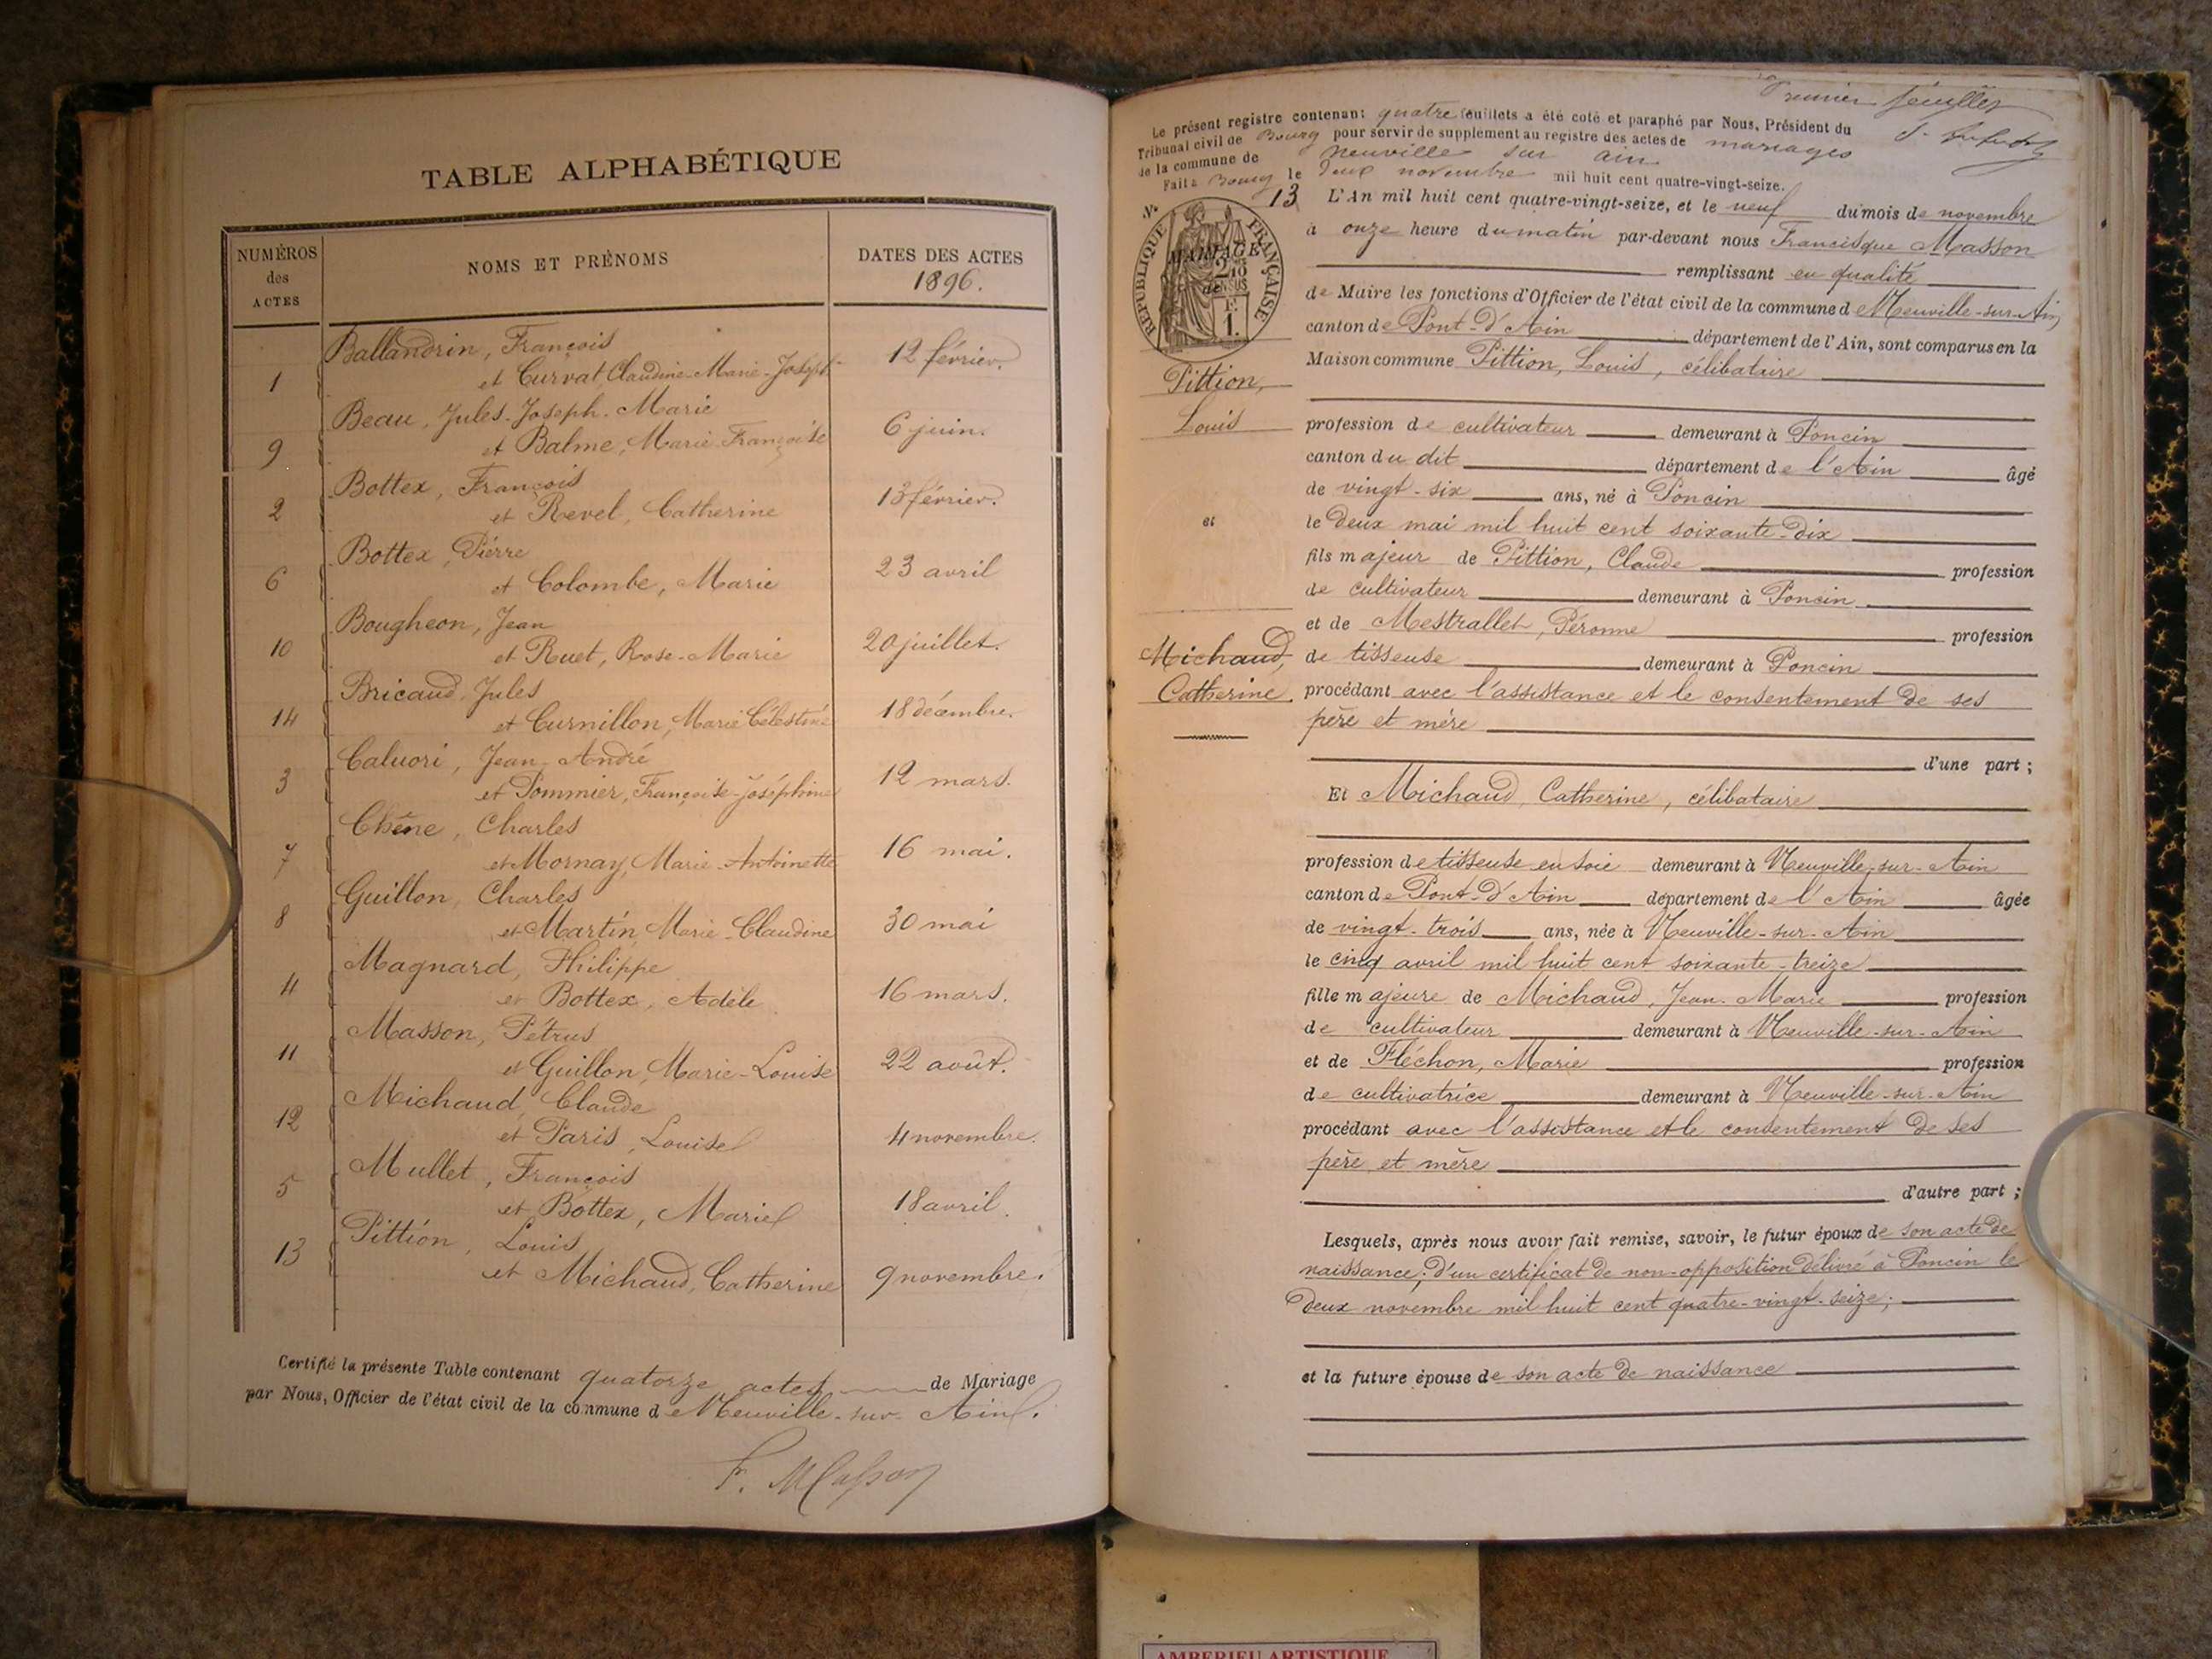 TABLE ALPHABÉTIQUE
NUMÉROS des ACTES
NOMS ET PRÉNOMS
DATES DES ACTES 1896.
1 Ballandrin, François 12 février.
et Curvat, Claudine-Marie-Joseph
9 Beau, Jules-Joseph-Marie 6 juin.
et Balme, Marie Françoise
2 Bottex, François 13 février.
et Revel, Catherine
6 Bottex, Pierre 23 avril
et Colombe, Marie
10 Bougheon, Jean 20 juillet.
et Ruet, Rose-Marie
14 Bricaud, Jules 18 décembre.
et Curnillon, Marie Célestine
3 Caluori, Jean-André 12 mars.
et Pommier, Françoise-Joséphine
7 Chêne, Charles 16 mai.
et Mornay, Marie-Antoinette
8 Guillon, Charles 30 mai
et Martin, Marie-Claudine
4 Magnard, Philippe 16 mars.
et Bottex, Adèle
11 Masson, Pétrus 22 août.
et Guillon, Marie-Louise
12 Michaud, Claude 4 novembre.
et Paris, Louise
5 Mullet, François 18 avril.
et Bottex, Marie
13 Pittion, Louis 9 novembre.
et Michaud, Catherine
Certifié la présente Table contenant quatorze actes de Mariage
par Nous, Officier de l'état civil de la commune de Neuville-sur-Ain.
F. Masson
Premier feuillet
Le présent registre contenant quatre feuillets a été coté et paraphé par Nous, Président du
Tribunal civil de Bourg pour servir de supplément au registre des actes de mariages
de la commune de Neuville sur ain
Fait à Bourg le deux novembre mil huit cent quatre-vingt-seize.
N° 13
RÉPUBLIQUE FRANÇAISE
MARIAGE
2/10
de
EN SUS
F.
1.
Pittion,
Louis
et
Michaud,
Catherine.
L'An mil huit cent quatre-vingt-seize, et le neuf du mois de novembre
à onze heure du matin par-devant nous Francisque Masson
remplissant en qualité
de Maire les fonctions d'Officier de l'état civil de la commune de Neuville-sur-Ain,
canton de Pont-d'Ain département de l'Ain, sont comparus en la
Maison commune Pittion, Louis, célibataire
profession de cultivateur demeurant à Poncin
canton du dit département de l'Ain âgé
de vingt-six ans, né à Poncin
le deux mai mil huit cent soixante-dix
fils majeur de Pittion, Claude profession
de cultivateur demeurant à Poncin
et de Mestrallet, Péronne profession
de tisseuse demeurant à Poncin
procédant avec l'assistance et le consentement de ses
père et mère
d'une part ;
Et Michaud, Catherine, célibataire
profession de tisseuse en soie demeurant à Neuville-sur-Ain
canton de Pont-d'Ain département de l'Ain âgée
de vingt-trois ans, née à Neuville-sur-Ain
le cinq avril mil huit cent soixante-treize
fille majeure de Michaud, Jean-Marie profession
de cultivateur demeurant à Neuville-sur-Ain
et de Fléchon, Marie profession
de cultivatrice demeurant à Neuville-sur-Ain
procédant avec l'assistance et le consentement de ses
père et mère
d'autre part ;
Lesquels, après nous avoir fait remise, savoir, le futur époux de son acte de
naissance; d'un certificat de non-opposition délivré à Poncin le
deux novembre mil huit cent quatre-vingt-seize;
et la future épouse de son acte de naissance
AMBERIEU ARTISTIQUE